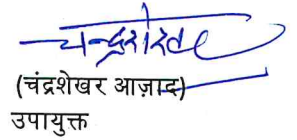 चन्द्रशेखर
(चंद्रशेखर आज़ाद)
उपायुक्त